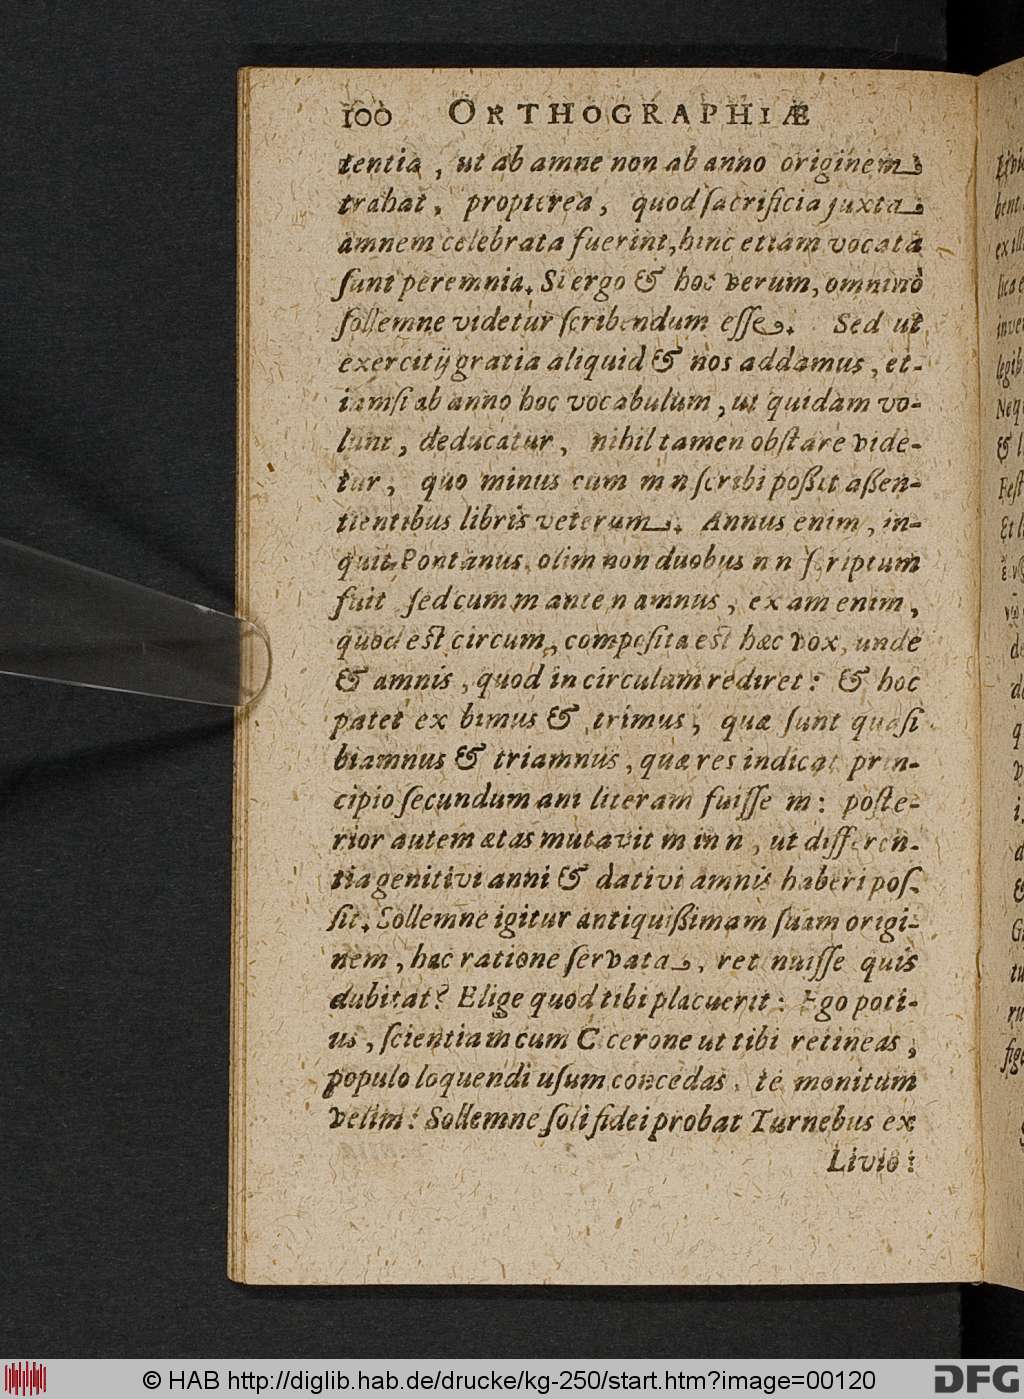 100 ORTHOGRAPHIÆ
tentia, ut ab amne non ab anno originem
trahat, propterea, quod ſacrificia juxta
amnem celebrata fuerint, hinc etiam vocata
ſunt peremnia. Si ergo & hoc verum, omninò
ſollemne videtur ſcribendum eſſe. Sed ut
exercitij gratia aliquid & nos addamus, et-
iamſi ab anno hoc vocabulum, ut quidam vo-
lunt, deducatur, nihil tamen obſtare vide-
tur, quo minus cum m n ſcribi poßit aßen-
tientibus libris veterum. Annus enim, in-
quit Pontanus, olim non duobus n n ſcriptum
fuit ſed cum m ante n amnus, ex am enim,
quod eſt circum, compoſita eſt hæc vox, unde
& amnis, quod in circulum rediret: & hoc
patet ex bimus & trimus, quæ ſunt quaſi
biamnus & triamnus, quæ res indicat prin-
cipio ſecundum ani literam fuiſſe m: poſte-
rior autem ætas mutavit m in n, ut differen-
tia genitivi anni & dativi amnis haberi poſ-
ſit. Sollemne igitur antiquißimam ſuam origi-
nem, hac ratione ſervata, retinuiſſe quis
dubitat? Elige quod tibi placuerit: Ego poti-
us, ſcientiam cum Cicerone ut tibi retineas,
populo loquendi uſum concedas, te monitum
velim! Sollemne ſoli fidei probat Turnebus ex
Livio:
© HAB http://diglib.hab.de/drucke/kg-250/start.htm?image=00120
DFG